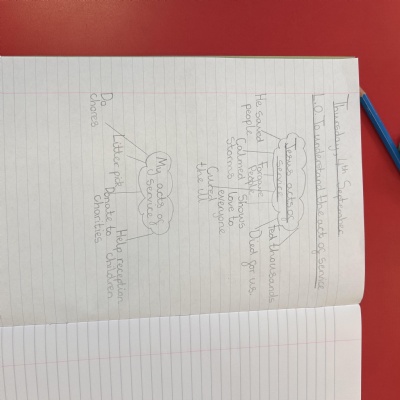 Thursday 4th September
L.O To understand the act of service
Jesus acts of
service
He saved
people
Forgave
People
Calmed
Storms
Cured
the ill
Shows
love to
everyone
Died for us.
Fed thousands
My acts of
service
Do
chores
Litter pick
Donate to
charities
Help reception
children